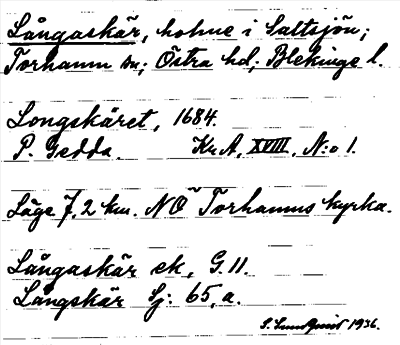 Långaskär, holme i Saltsjön;
Torhamn sn; Östra hd; Blekinge l.
Longskäret, 1684.
P. Gedda. Kr. A, XVIII, N:o 1.
Läge 7,2 km. NO Torhamns kyrka.
Långaskär ek, G.11.
Långskär Sj: 65, a.
S. Lundquist 1936.